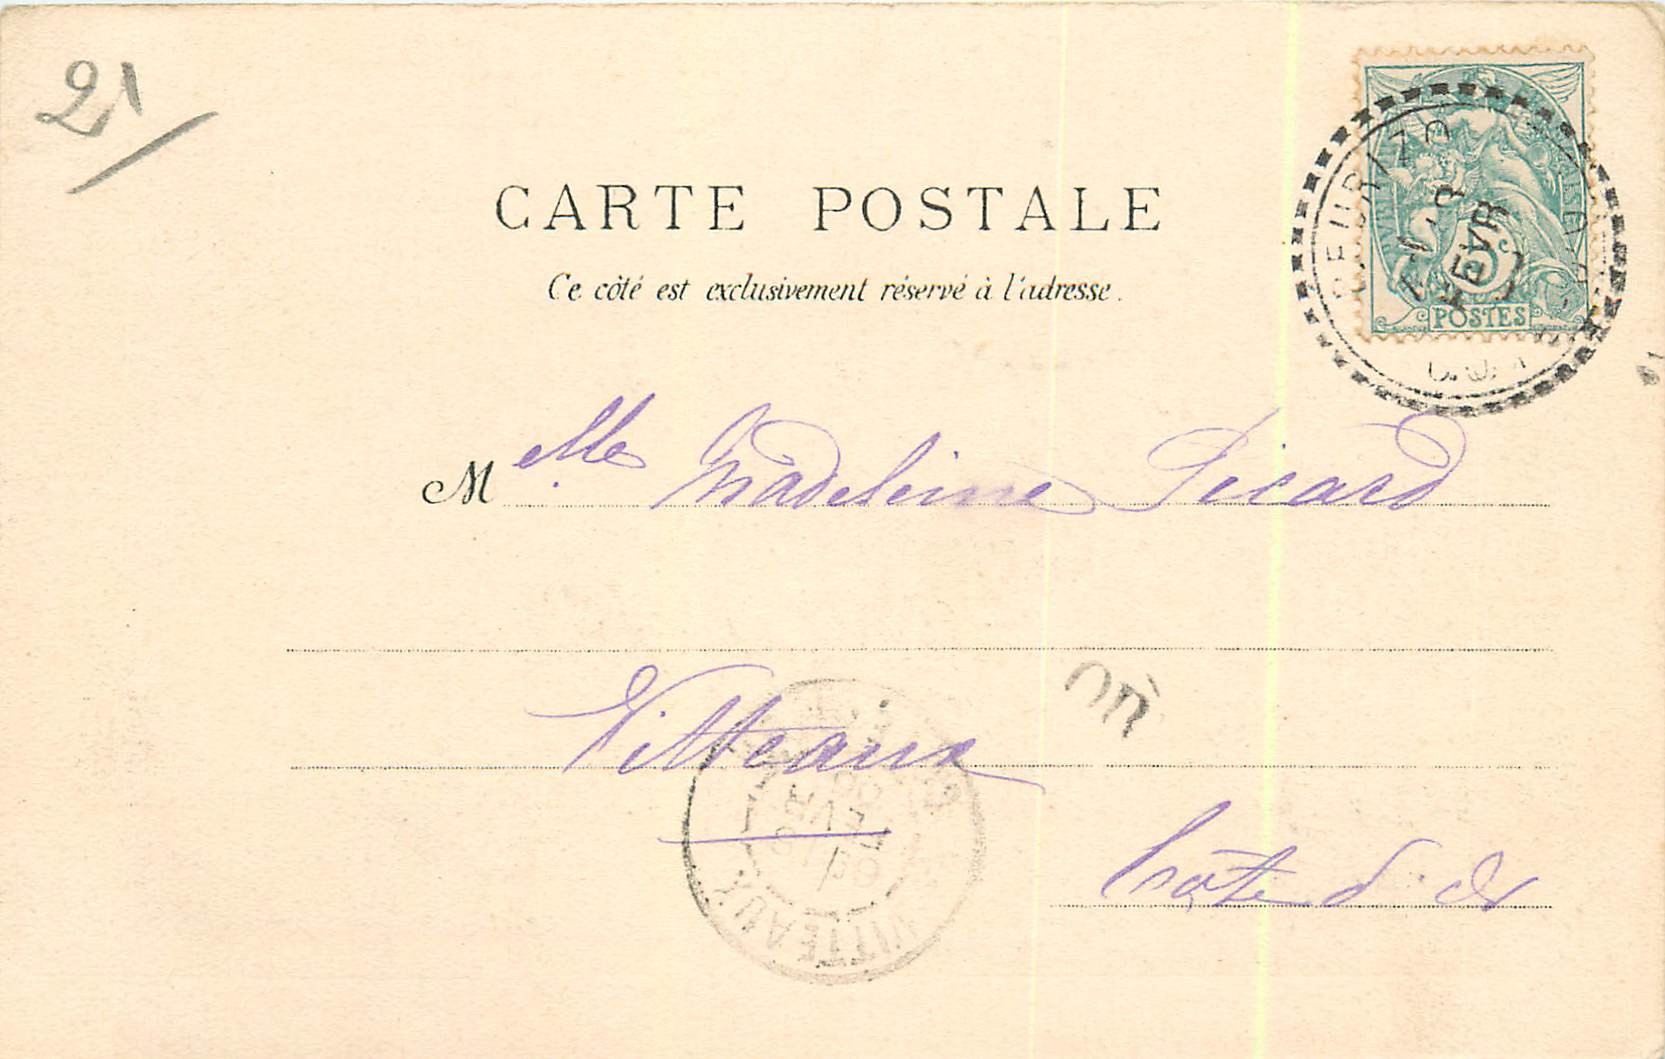 21
CARTE POSTALE
Ce côté est exclusivement réservé à l'adresse.
POSTES
FEVR
Melle Madeleine Picard
Vitteaux
Côte d'Or
OR
VITTEAUX
FEVR